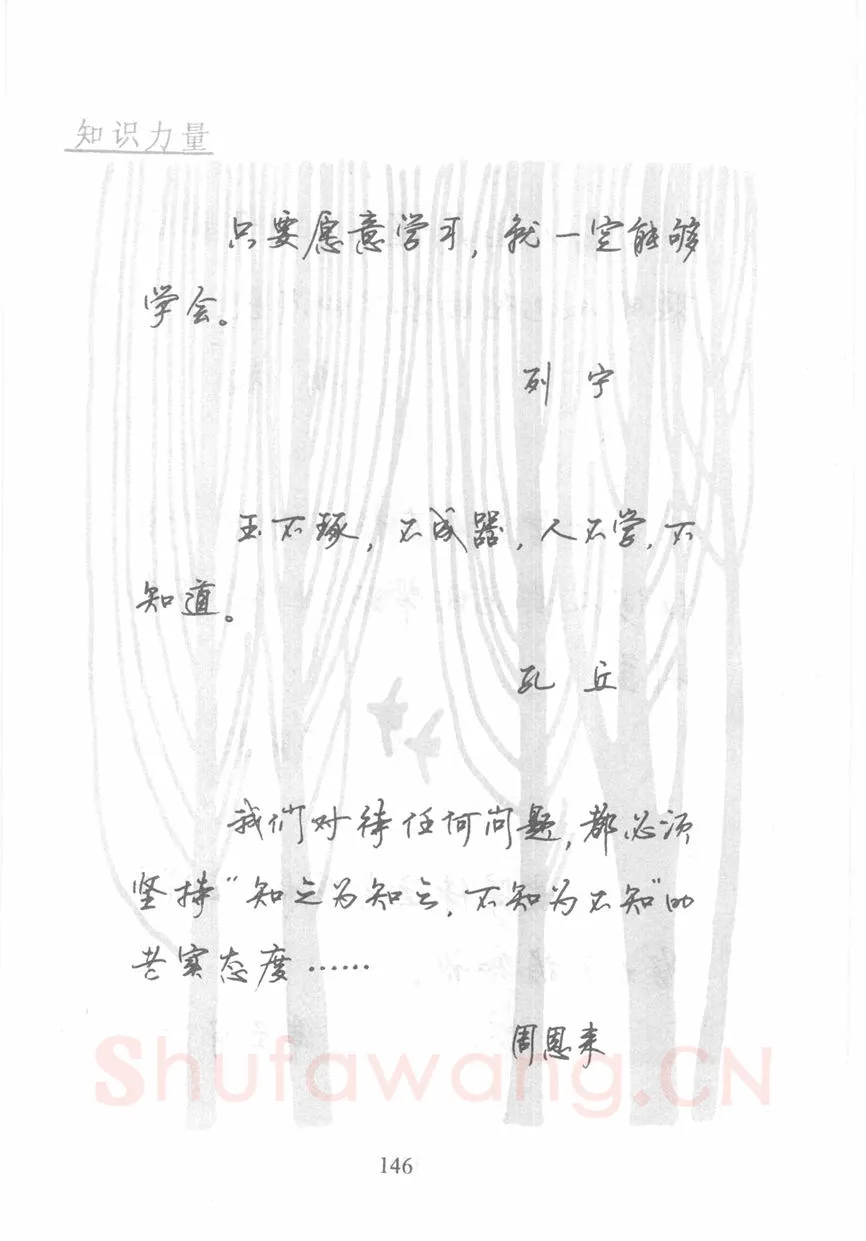 知识力量
只要愿意学习，就一定能够
学会。
列宁
玉不琢，不成器，人不学，不
知道。
孔丘
我们对待任何问题，都必须
坚持“知之为知之，不知为不知”的
老实态度……
周恩来
Shufawang.CN
146